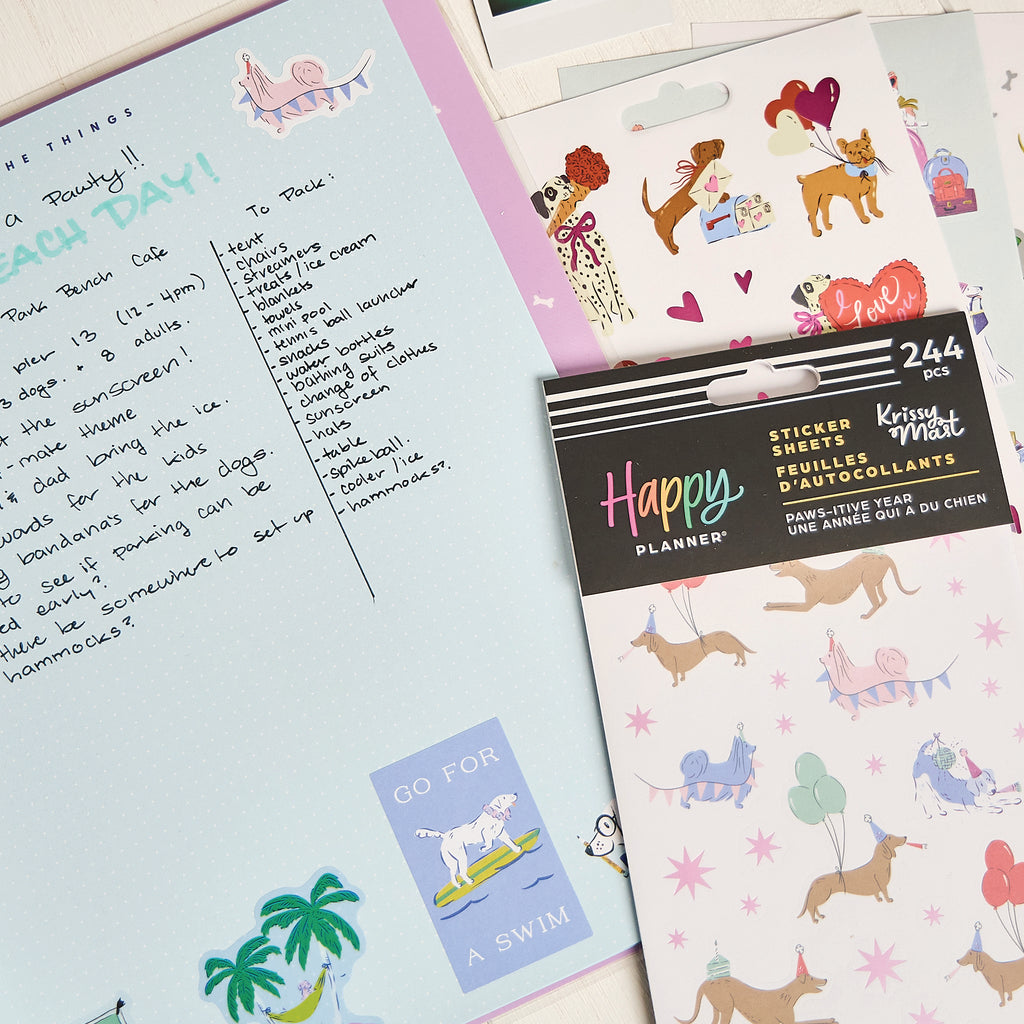 THE THINGS
a Pawty!!
EACH DAY!
Park Bench Cafe
pier 13 (12-4pm)
3 dogs. + 8 adults.
the sunscreen!
- make theme
& dad bring the ice.
for the kids
bandana's for the dogs.
to see if parking can be
ed early?
there be somewhere to set up
hammocks?
To Pack:
- tent
- chairs
- streamers
- treats/ice cream
- blankets
- towels
- mini pool
- tennis ball launcher
- snacks
- water bottles
- bathing suits
- change of clothes
- sunscreen
- hats
- table
- spikeball.
- cooler/ice
- hammocks?
GO FOR
A SWIM
I
Love
You
244
pcs
Happy
PLANNER®
STICKER
SHEETS
FEUILLES
D'AUTOCOLLANTS
Krissy
Mast
PAWS-ITIVE YEAR
UNE ANNÉE QUI A DU CHIEN